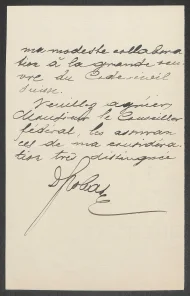 ma modeste collabora
tion à la grande oeu
vre du Code civil
suisse.
Veuillez agréer,
Monsieur le Conseiller
fédéral, les assuran
ces de ma considéra
tion très distinguée